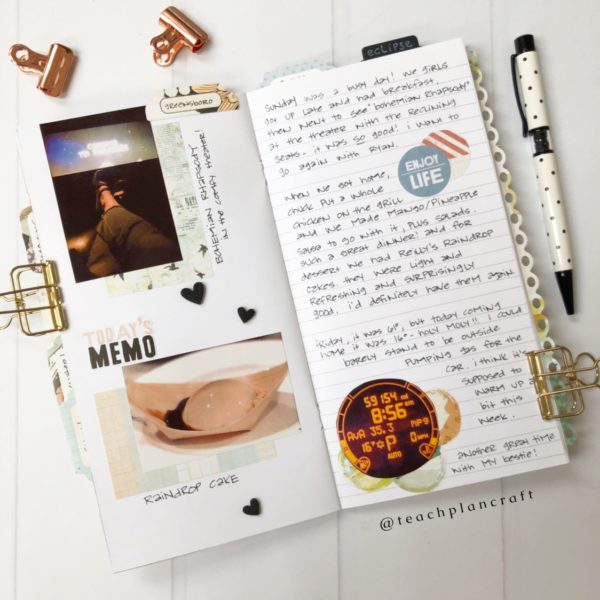 GREENSBORO
BOHEMIAN RHAPSODY
IN THE COMFY THEATER!
TODAY'S
MEMO
RAINDROP CAKE
eclipse
SUNDAY WAS A BUSY DAY! WE GIRLS
GOT UP LATE AND HAD BREAKFAST.
THEN WENT TO SEE "BOHEMIAN RHAPSODY"
AT THE THEATER WITH THE RECLINING
SEATS. IT WAS SO GOOD! I WANT TO
GO AGAIN WITH RYAN.
ENJOY
LIFE
WHEN WE GOT HOME,
CHUCK PUT A WHOLE
CHICKEN ON THE GRILL
AND WE MADE MANGO/PINEAPPLE
SALSA TO GO WITH IT, PLUS SALADS.
SUCH A GREAT DINNER! AND FOR
DESSERT WE HAD REILLY'S RAINDROP
CAKES. THEY WERE LIGHT AND
REFRESHING AND SURPRISINGLY
GOOD. I'D DEFINITELY HAVE THEM AGAIN
FRIDAY, IT WAS 61°, BUT TODAY COMING
HOME IT WAS 16°- HOLY MOLY!! I COULD
BARELY STAND TO BE OUTSIDE
PUMPING GAS FOR THE
CAR. I THINK IT'S
SUPPOSED TO
WARM UP A
BIT THIS
WEEK.
59154
8:56
AVA 35.3
16° P 0
AUTO
ANOTHER GREAT TIME
WITH MY BESTIE!
@teachplancraft